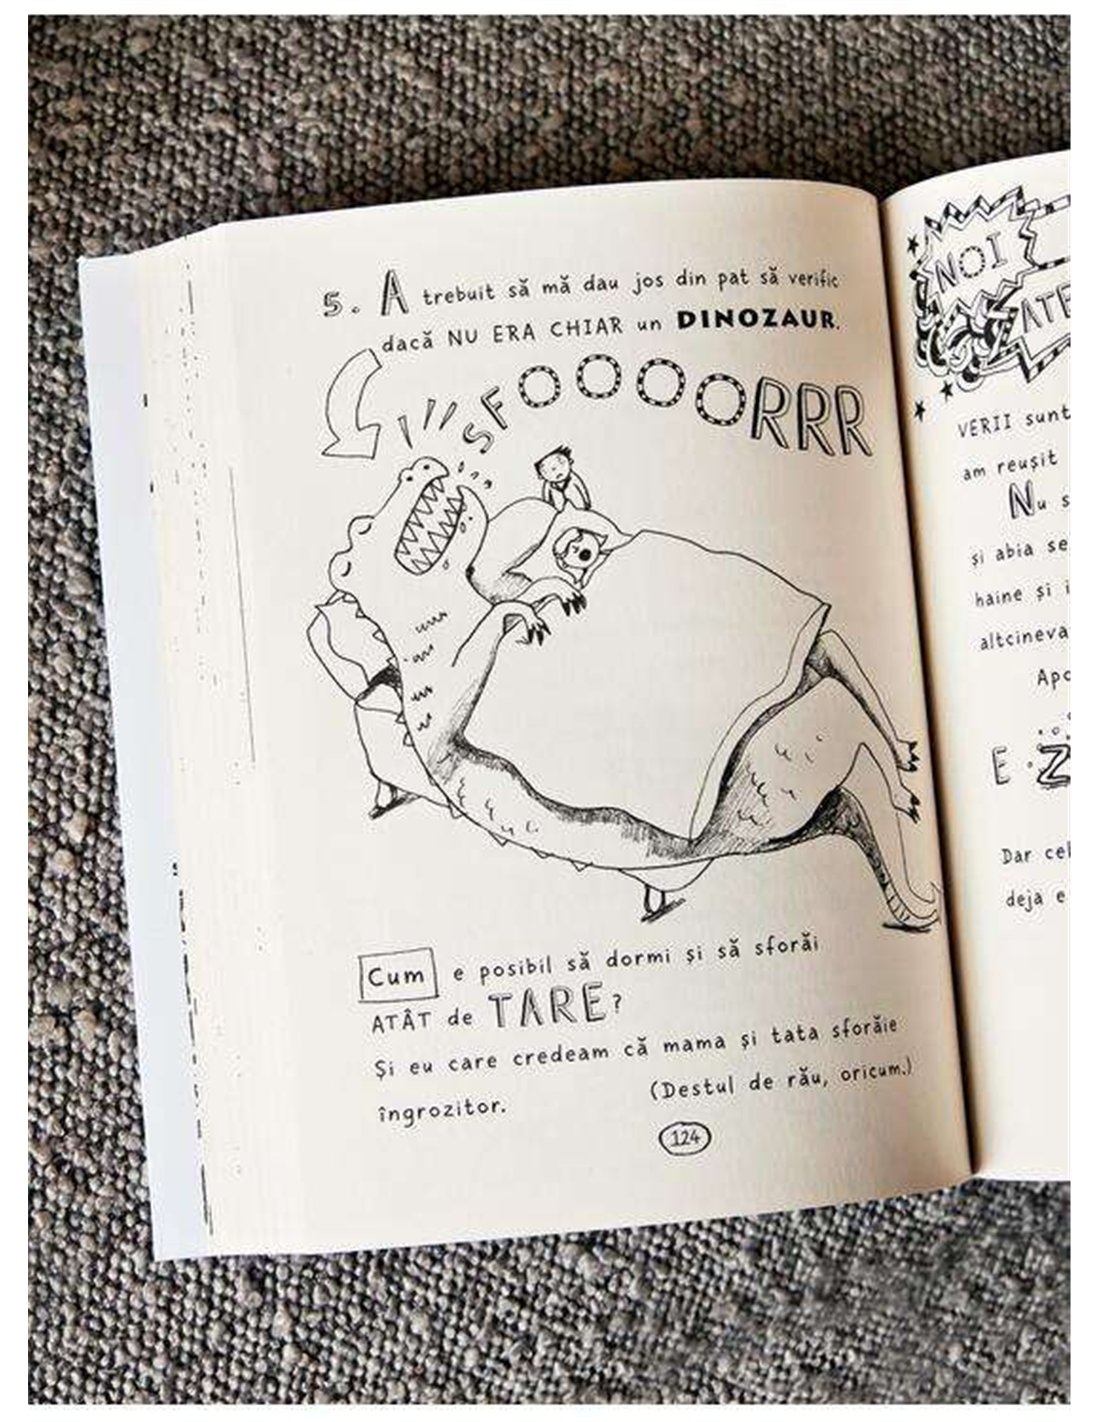 5. A trebuit să mă dau jos din pat să verific
dacă NU ERA CHIAR un DINOZAUR.
SFOOOORRR
Cum e posibil să dormi și să sforăi
ATÂT de TARE?
Și eu care credeam că mama și tata sforăie
îngrozitor. (Destul de rău, oricum.)
124
NOI
VERII sunt
am reușit
Nu
și abia
haine și
altcineva
E
Dar
deja e